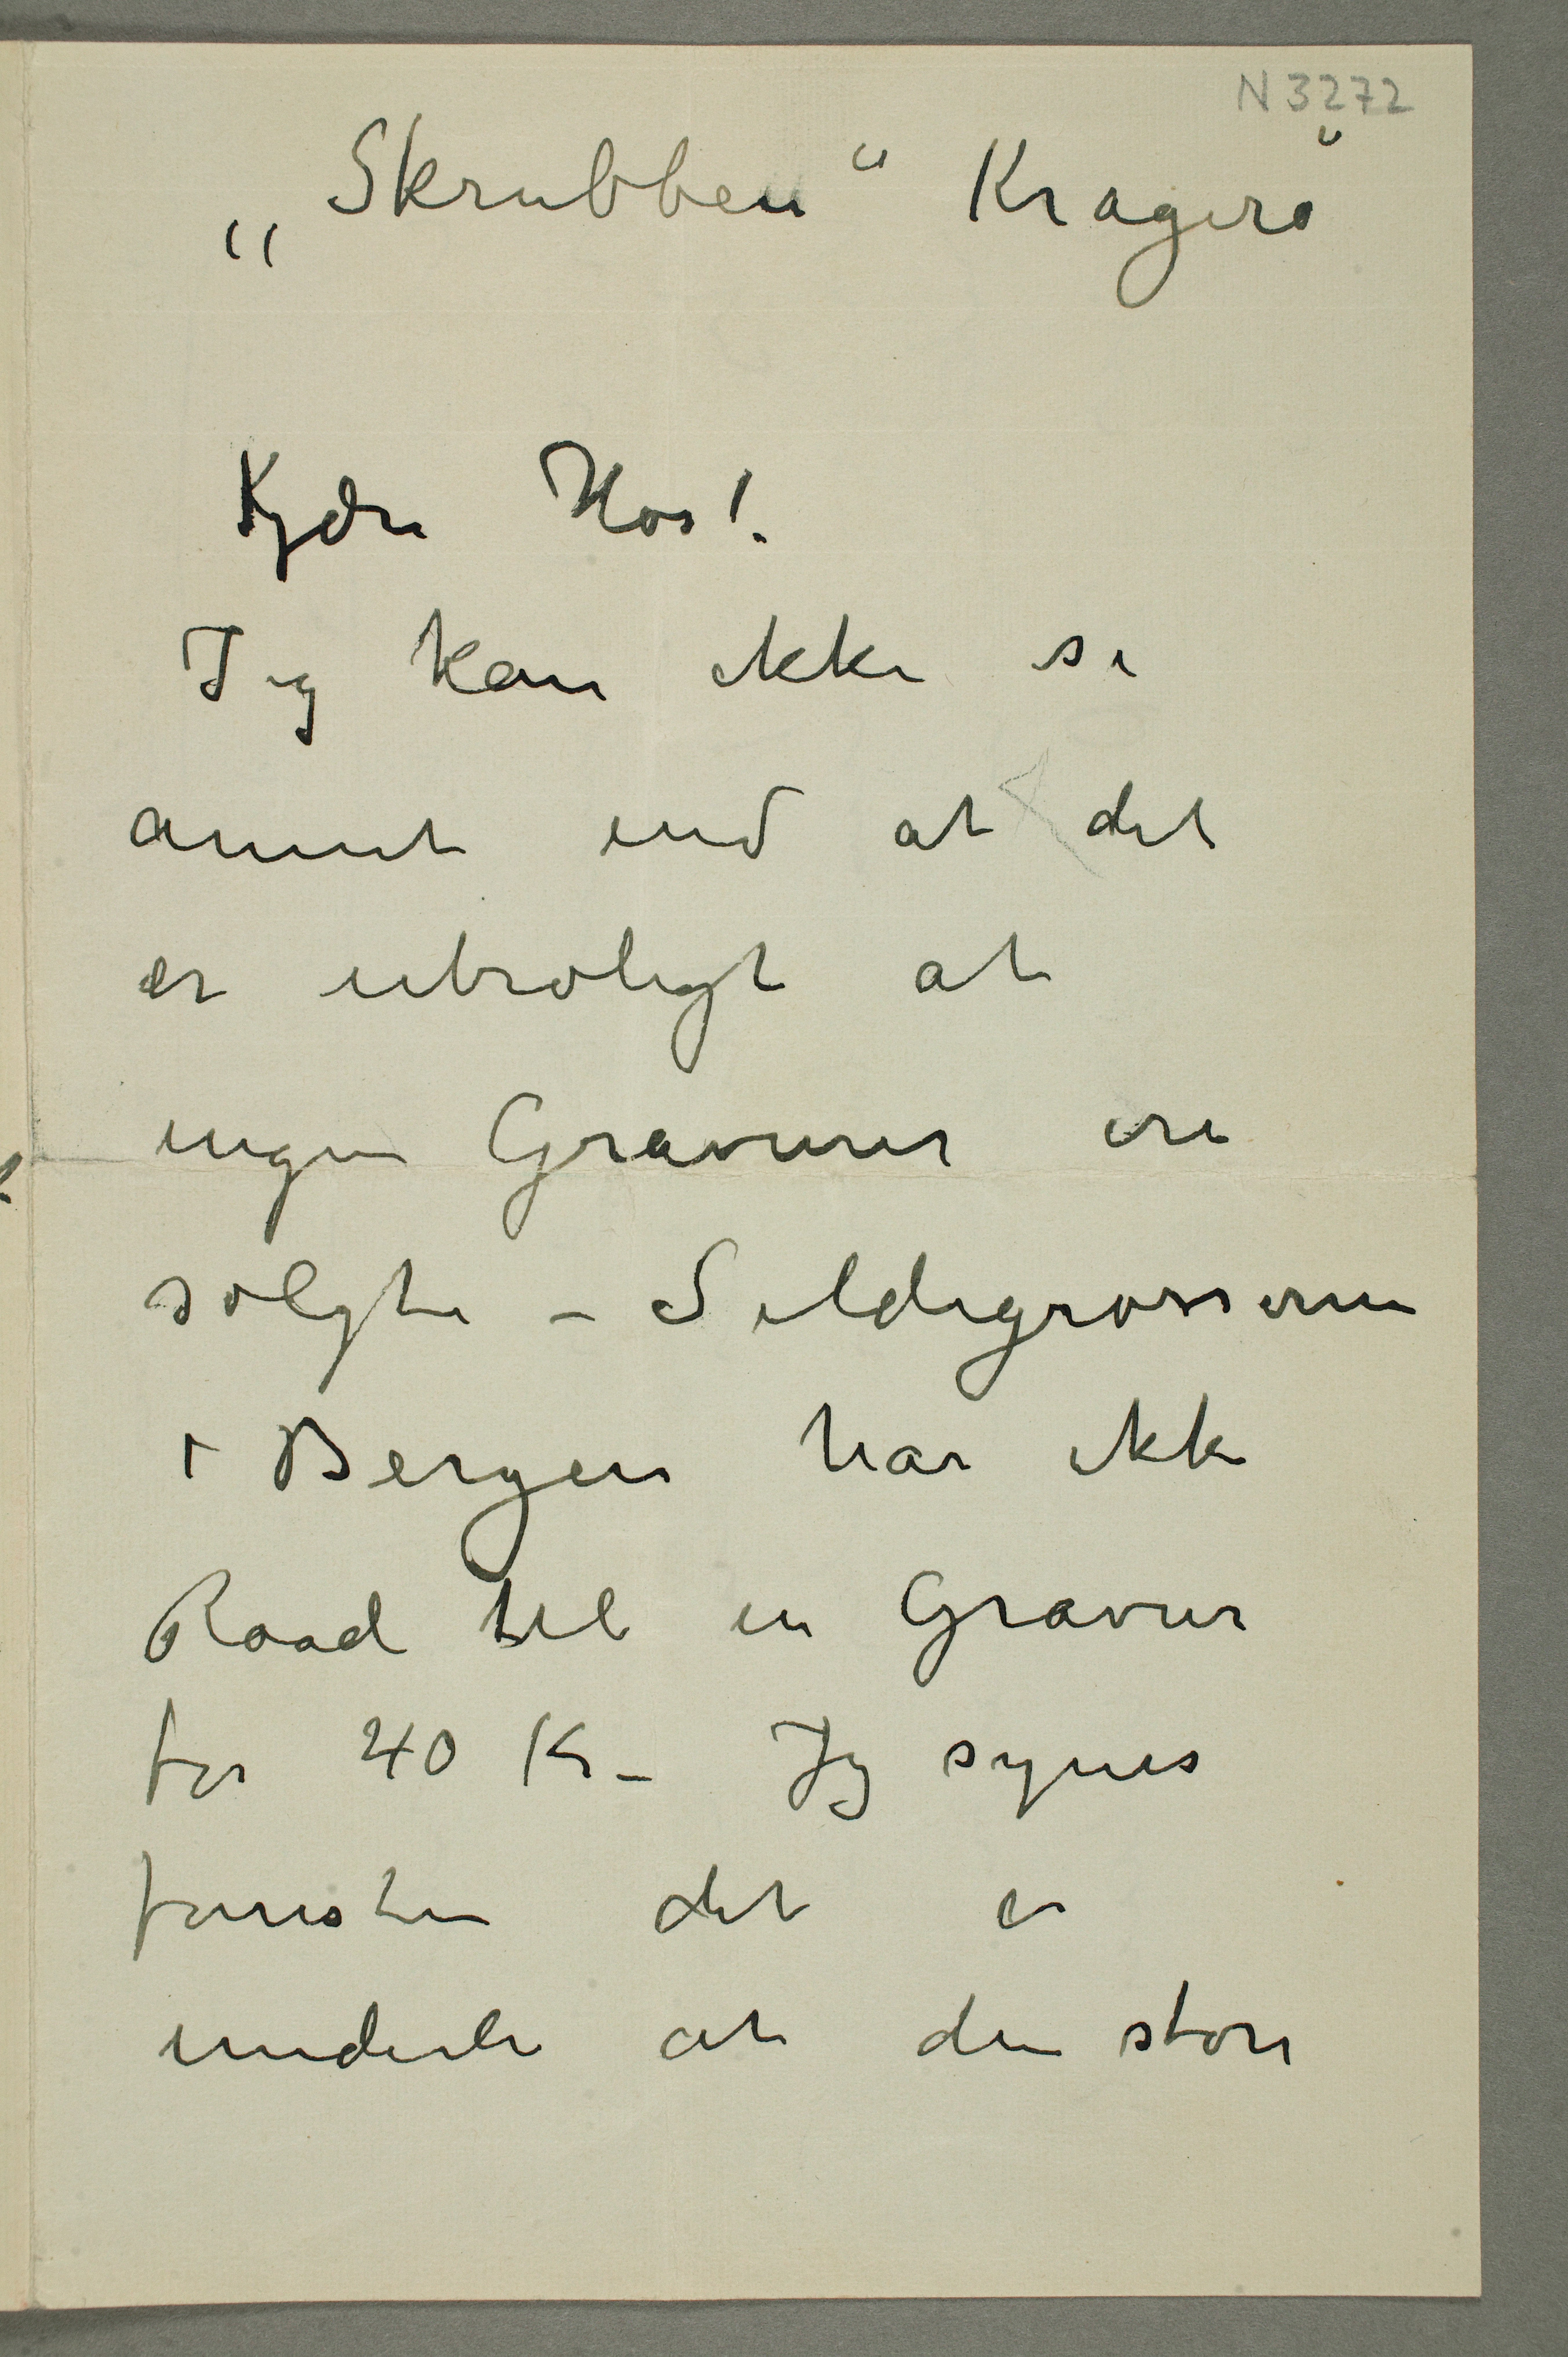 N 3272
„Skrubben“ Kragerö
Kjære Hos!
Jeg kan ikke se
annet end at det
er utroligt at
ingen Gravurer ere
solgte – Sildegrosserne
i Bergen har ikke
Raad til en Gravur
for 40 Kr – Jeg synes
foresten det er
underli at den store